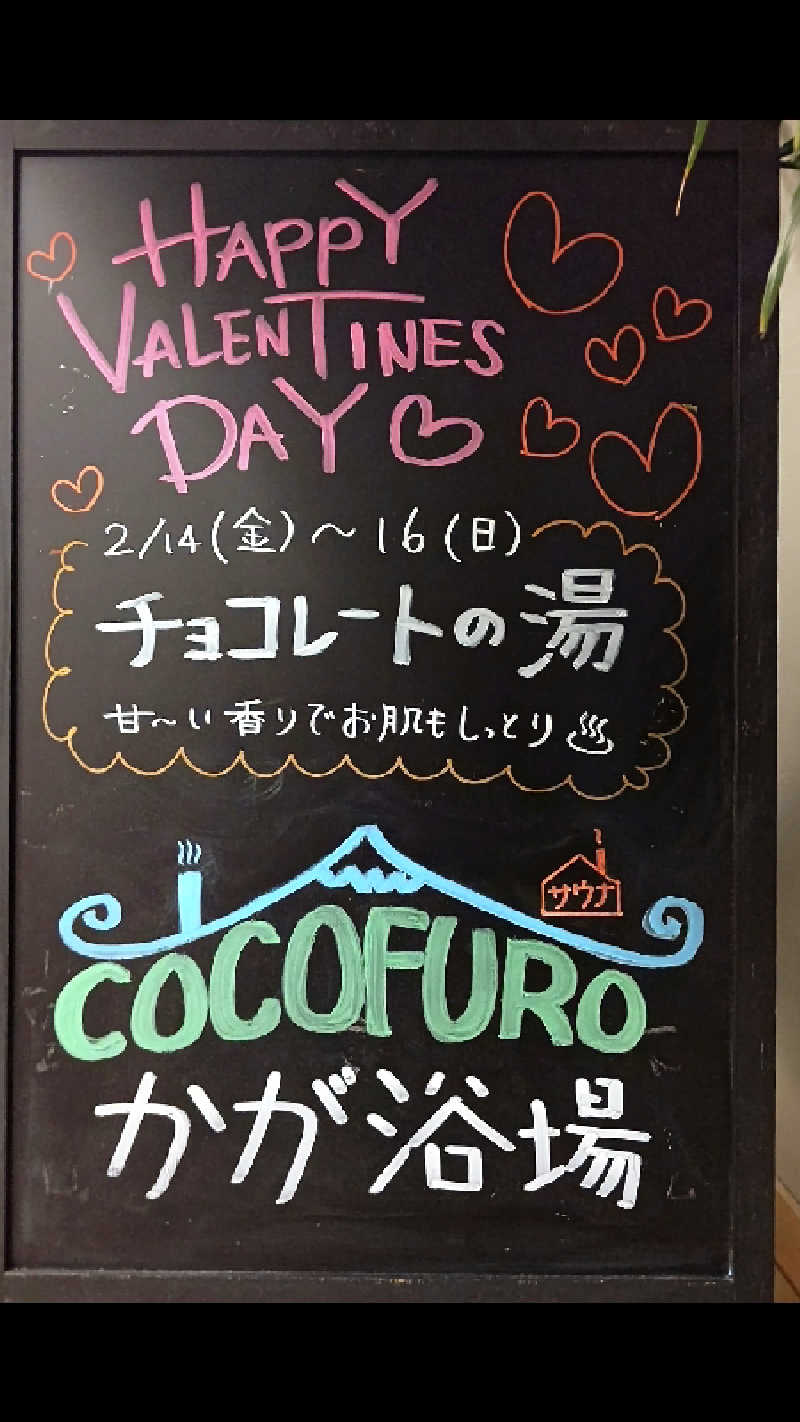 HAPPY
VALENTINES
DAY
2/14(金)〜16(日)
チョコレートの湯
甘〜い香りでお肌もしっとり♨
サウナ
COCOFURO
かが浴場